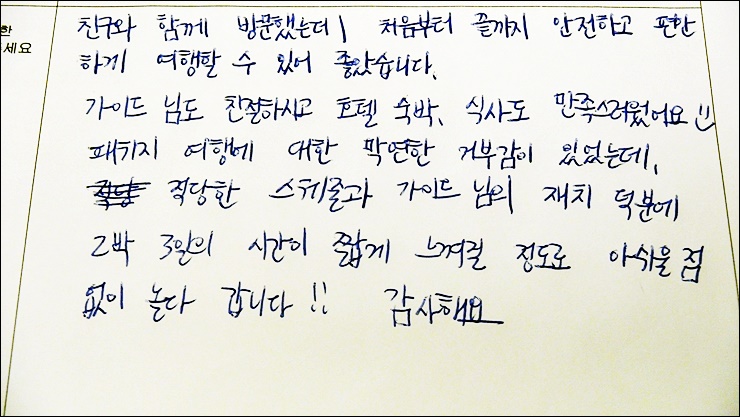 한
세요
친구와 함께 방문했는데, 처음부터 끝까지 안전하고 편한
하게 여행할 수 있어 좋았습니다.
가이드 님도 친절하시고 호텔 숙박, 식사도 만족스러웠어요
패키지 여행에 대한 막연한 거부감이 있었는데,
적당 적당한 스케줄과 가이드 님의 재치 덕분에
2박 3일의 시간이 짧게 느껴질 정도로 아쉬울 점
없이 놀다 갑니다!! 감사해요